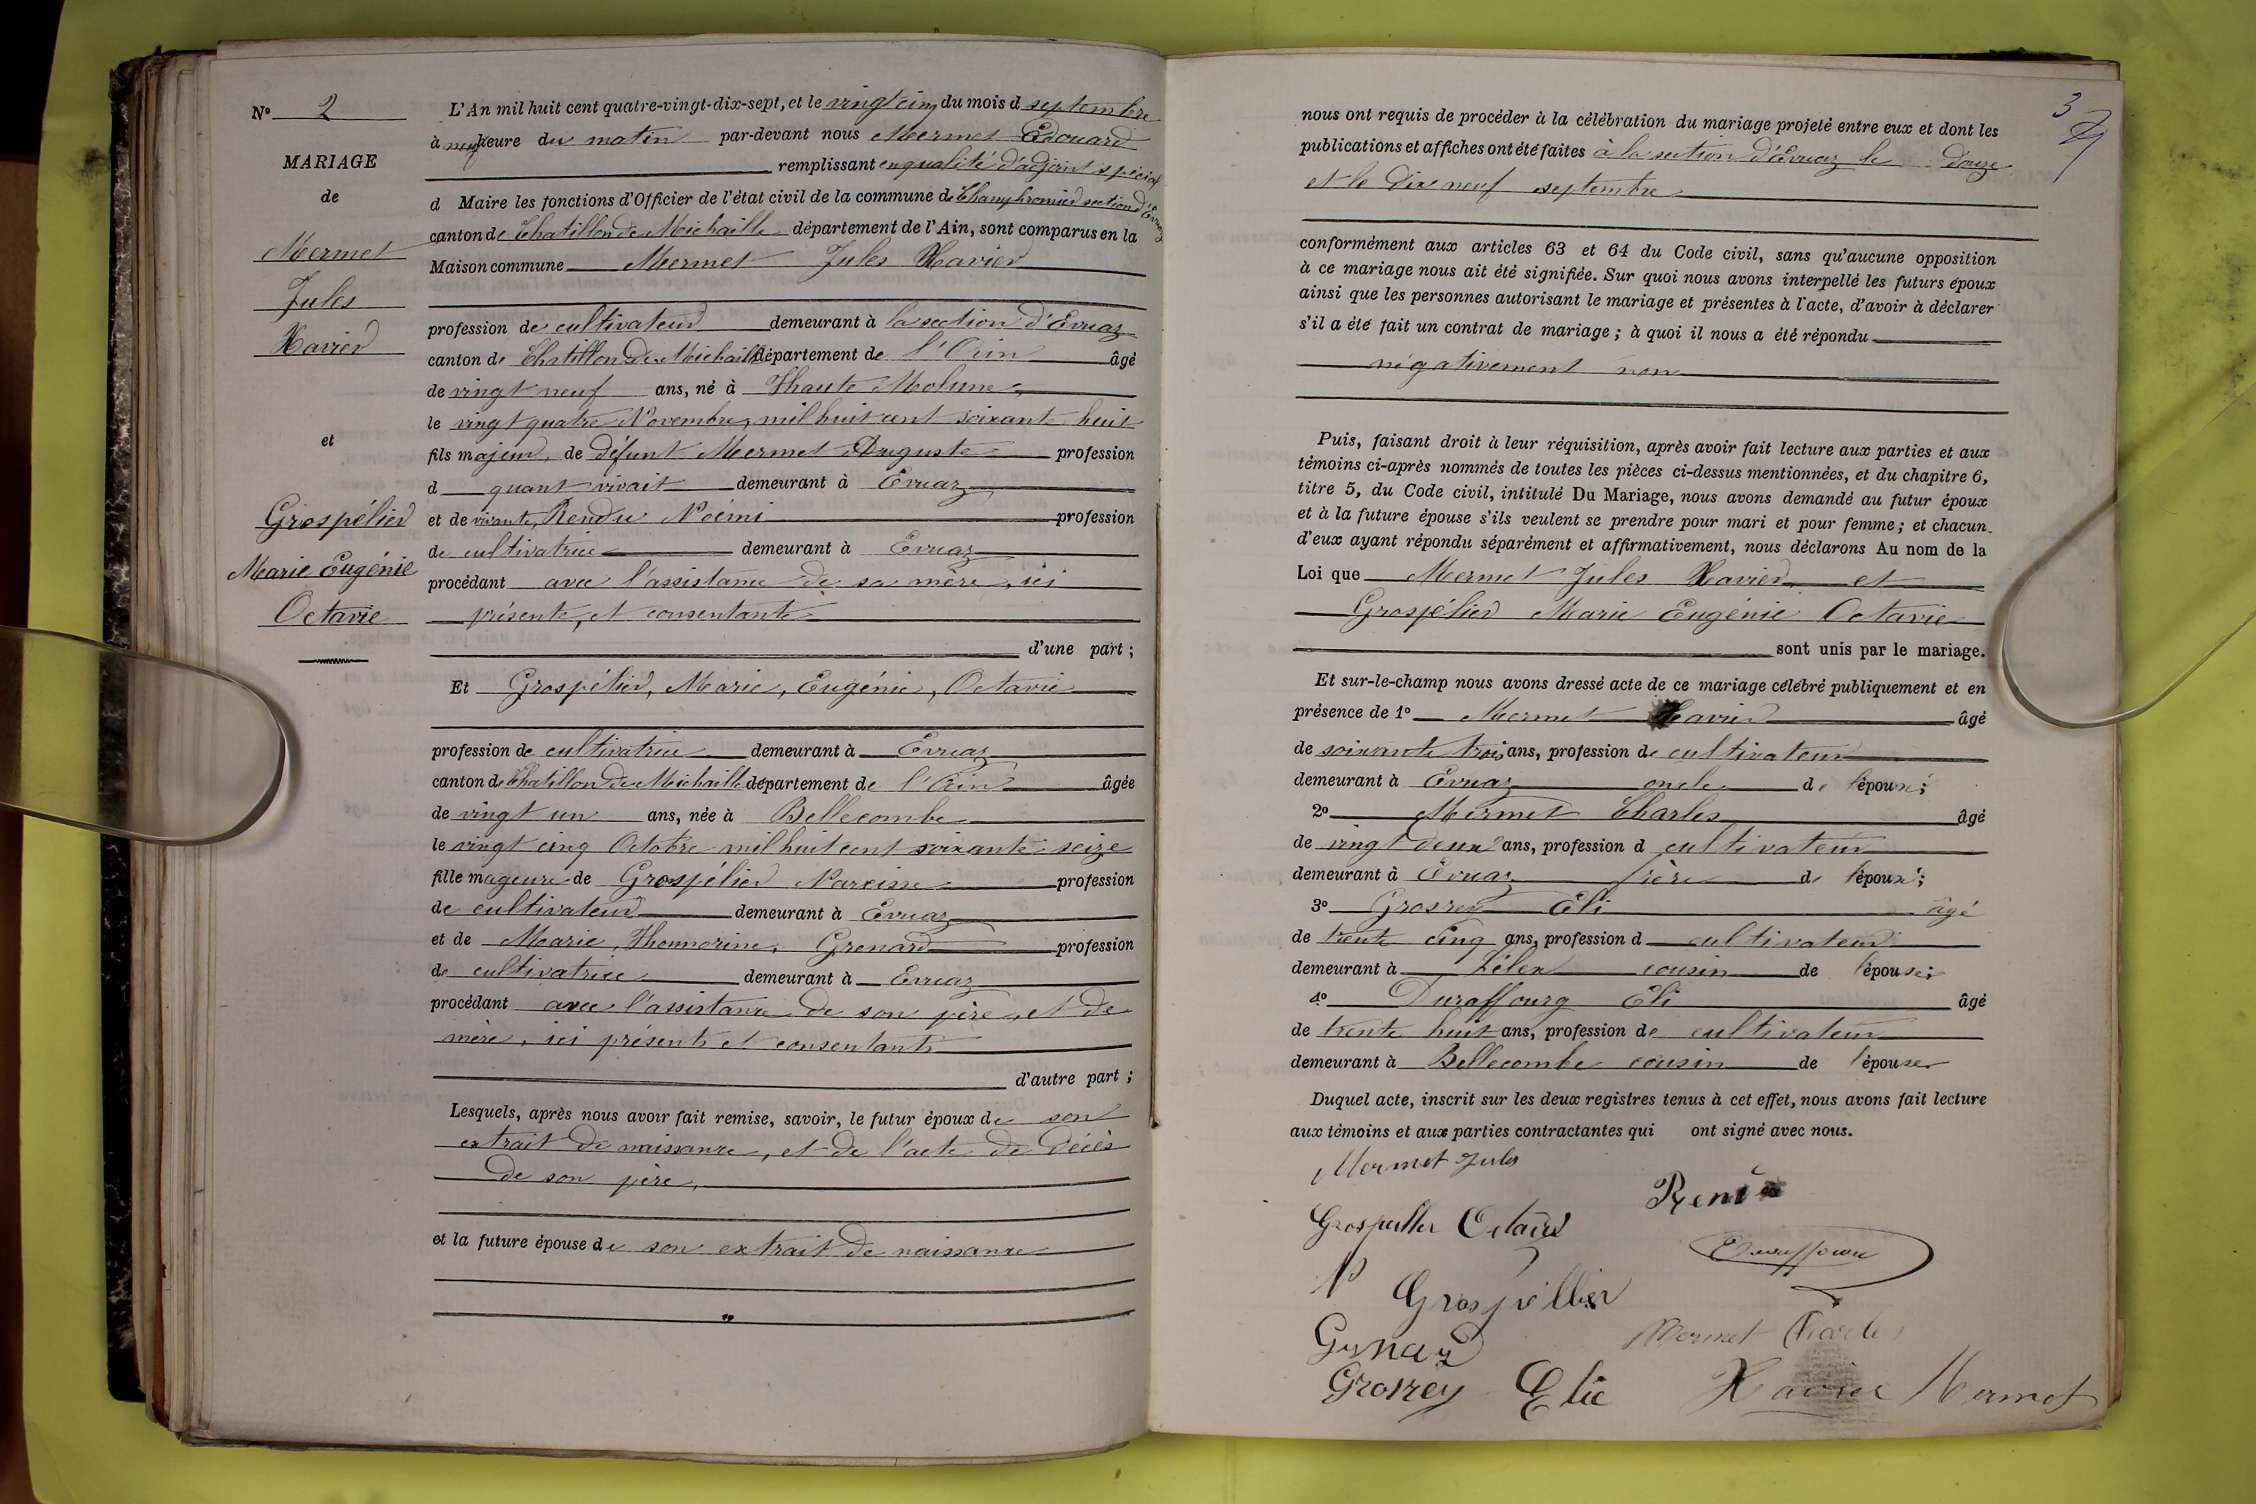 N° 2
MARIAGE
de
Mermet
Jules
Xavier
et
Grospélier
Marie Eugénie
Octavie
L'An mil huit cent quatre-vingt-dix-sept, et le vingt cinq du mois d septembre
à neuf heure du matin par-devant nous Mermet Edouard
remplissant en qualité d'adjoint spécial
d Maire les fonctions d'Officier de l'état civil de la commune de Champfromier section d'Evuaz
canton de Chatillon de Michaille département de l'Ain, sont comparus en la
Maison commune Mermet Jules Xavier
profession de cultivateur demeurant à la section d'Evuaz
canton de Chatillon de Michaille département de l'Ain âgé
de vingt neuf ans, né à Haute Molune,
le vingt quatre Novembre, mil huit cent soixante huit
fils majeur, de défunt Mermet Auguste profession
d quant vivait demeurant à Evuaz
et de vivante, Rendu Noémi profession
de cultivatrice demeurant à Evuaz
procédant avec l'assistance de sa mère, ici
présente, et consentante
d'une part ;
Et Grospélier, Marie, Eugénie, Octavie
profession de cultivatrice demeurant à Evuaz
canton de Chatillon de Michaille département de l'Ain âgée
de vingt un ans, née à Bellecombe
le vingt cinq Octobre mil huit cent soixante seize
fille mageure de Grospélier Narcisse profession
de cultivateur demeurant à Evuaz
et de Marie, Honnorine, Grenard profession
de cultivatrice demeurant à Evuaz
procédant avec l'assistance de son père, et de
mère, ici présents et consentants
d'autre part ;
Lesquels, après nous avoir fait remise, savoir, le futur époux de son
extrait de naissance, et de l'acte de décès
de son père,
et la future épouse de son extrait de naissance
"
3
nous ont requis de procéder à la célébration du mariage projeté entre eux et dont les
publications et affiches ont été faites à la section d'Evuaz le douze
et le dix neuf septembre
conformément aux articles 63 et 64 du Code civil, sans qu'aucune opposition
à ce mariage nous ait été signifiée. Sur quoi nous avons interpellé les futurs époux
ainsi que les personnes autorisant le mariage et présentes à l'acte, d'avoir à déclarer
s'il a été fait un contrat de mariage ; à quoi il nous a été répondu
négativement non
Puis, faisant droit à leur réquisition, après avoir fait lecture aux parties et aux
témoins ci-après nommés de toutes les pièces ci-dessus mentionnées, et du chapitre 6,
titre 5, du Code civil, intitulé Du Mariage, nous avons demandé au futur époux
et à la future épouse s'ils veulent se prendre pour mari et pour femme ; et chacun
d'eux ayant répondu séparément et affirmativement, nous déclarons Au nom de la
Loi que Mermet Jules Xavier et
Grospélier Marie Eugénie Octavie
sont unis par le mariage.
Et sur-le-champ nous avons dressé acte de ce mariage célébré publiquement et en
présence de 1° Mermet Xavier âgé
de soixante trois ans, profession de cultivateur
demeurant à Evuaz oncle de l'époux ;
2° Mermet Charles âgé
de vingt deux ans, profession d cultivateur
demeurant à Evuaz frère de l'époux ;
3° Grosrey Eli âgé
de trente cinq ans, profession d cultivateur
demeurant à Lélex cousin de l'épouse ;
4° Duraffourg Eli âgé
de trente huit ans, profession de cultivateur
demeurant à Bellecombe cousin de l'épouse
Duquel acte, inscrit sur les deux registres tenus à cet effet, nous avons fait lecture
aux témoins et aux parties contractantes qui ont signé avec nous.
Mermet Jules
Grospellier Octavie
N Grospellier
Mermet Charles
Grosrey Elie
Xavier Mermet